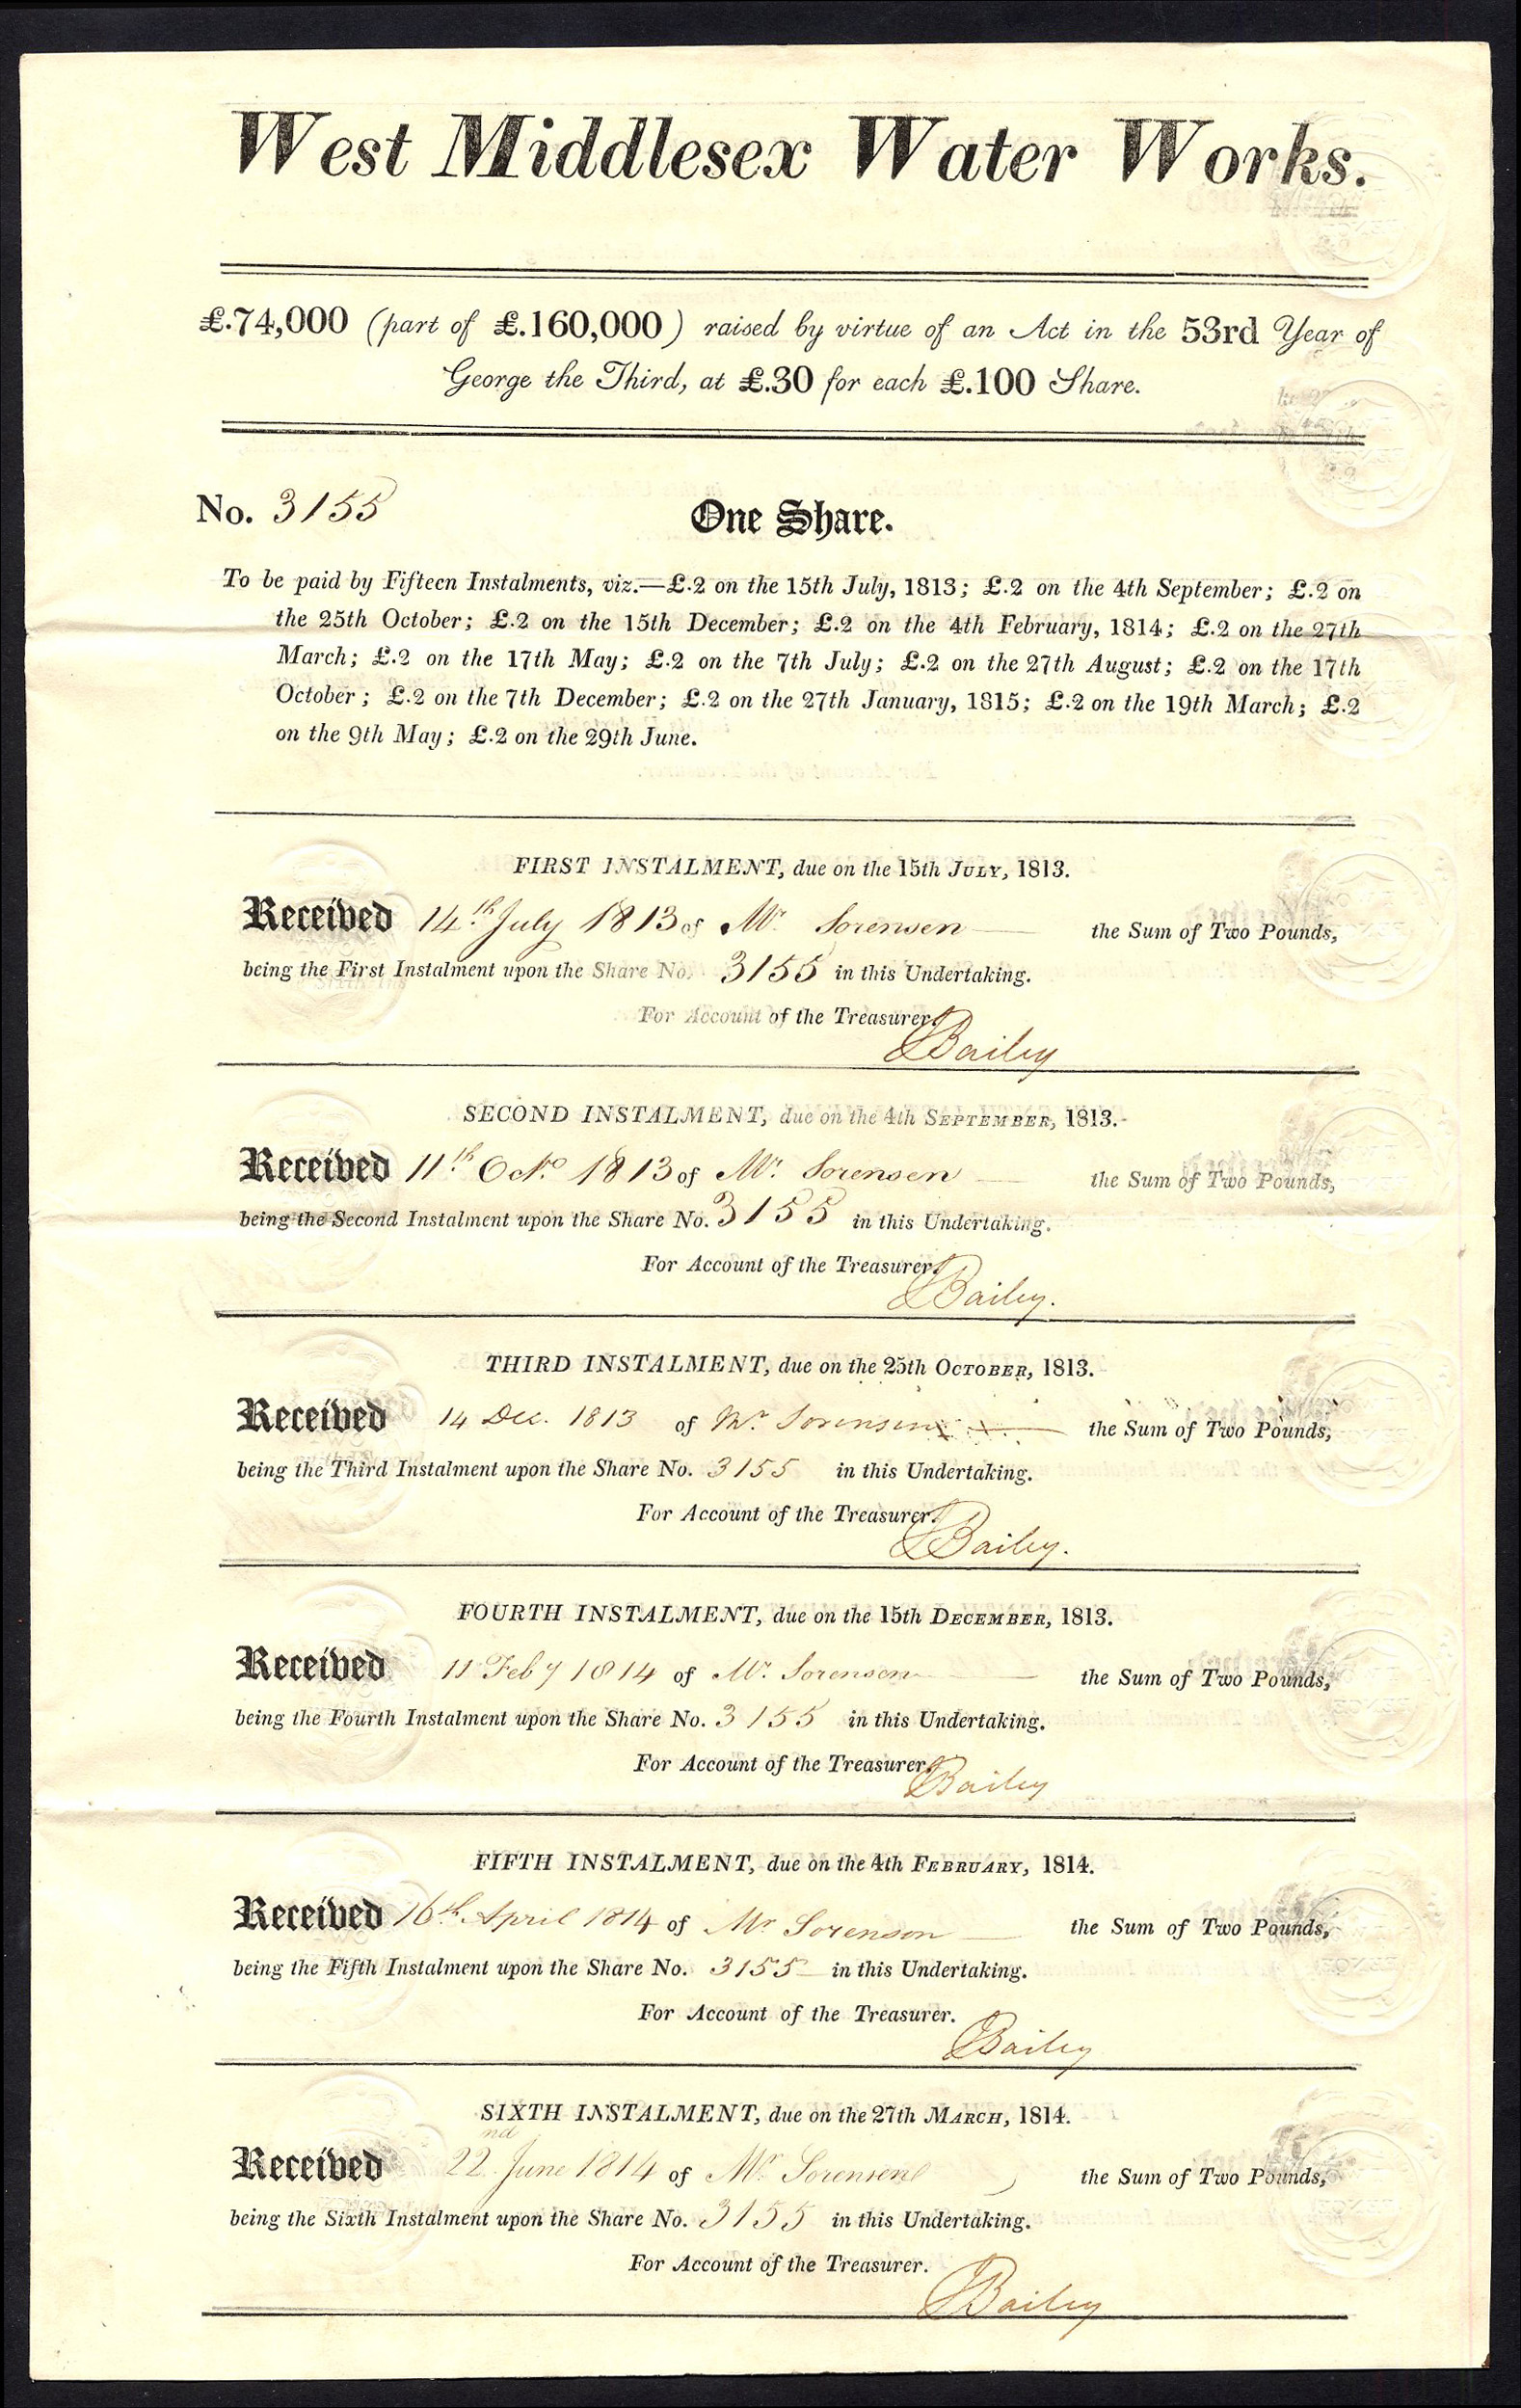 West Middlesex Water Works.
£.74,000 (part of £.160,000) raised by virtue of an Act in the 53rd Year of
George the Third, at £.30 for each £.100 Share.
No. 3155 One Share.
To be paid by Fifteen Instalments, viz.—£.2 on the 15th July, 1813; £.2 on the 4th September; £.2 on
the 25th October; £.2 on the 15th December; £.2 on the 4th February, 1814; £.2 on the 27th
March; £.2 on the 17th May; £.2 on the 7th July; £.2 on the 27th August; £.2 on the 17th
October; £.2 on the 7th December; £.2 on the 27th January, 1815; £.2 on the 19th March; £.2
on the 9th May; £.2 on the 29th June.
FIRST INSTALMENT, due on the 15th JULY, 1813.
Received 14th July 1813 of Mr Sorensen the Sum of Two Pounds,
being the First Instalment upon the Share No. 3155 in this Undertaking.
For Account of the Treasurer.
Bailey
SECOND INSTALMENT, due on the 4th SEPTEMBER, 1813.
Received 11th Octr 1813 of Mr Sorensen the Sum of Two Pounds,
being the Second Instalment upon the Share No. 3155 in this Undertaking.
For Account of the Treasurer.
Bailey.
THIRD INSTALMENT, due on the 25th OCTOBER, 1813.
Received 14 Dec. 1813 of Mr Sorensen the Sum of Two Pounds,
being the Third Instalment upon the Share No. 3155 in this Undertaking.
For Account of the Treasurer.
Bailey.
FOURTH INSTALMENT, due on the 15th DECEMBER, 1813.
Received 11 Feby 1814 of Mr Sorensen the Sum of Two Pounds,
being the Fourth Instalment upon the Share No. 3155 in this Undertaking.
For Account of the Treasurer.
Bailey
FIFTH INSTALMENT, due on the 4th FEBRUARY, 1814.
Received 16th April 1814 of Mr Sorenson the Sum of Two Pounds,
being the Fifth Instalment upon the Share No. 3155 in this Undertaking.
For Account of the Treasurer.
Bailey
SIXTH INSTALMENT, due on the 27th MARCH, 1814.
Received 22nd June 1814 of Mr Sorensen the Sum of Two Pounds,
being the Sixth Instalment upon the Share No. 3155 in this Undertaking.
For Account of the Treasurer.
Bailey